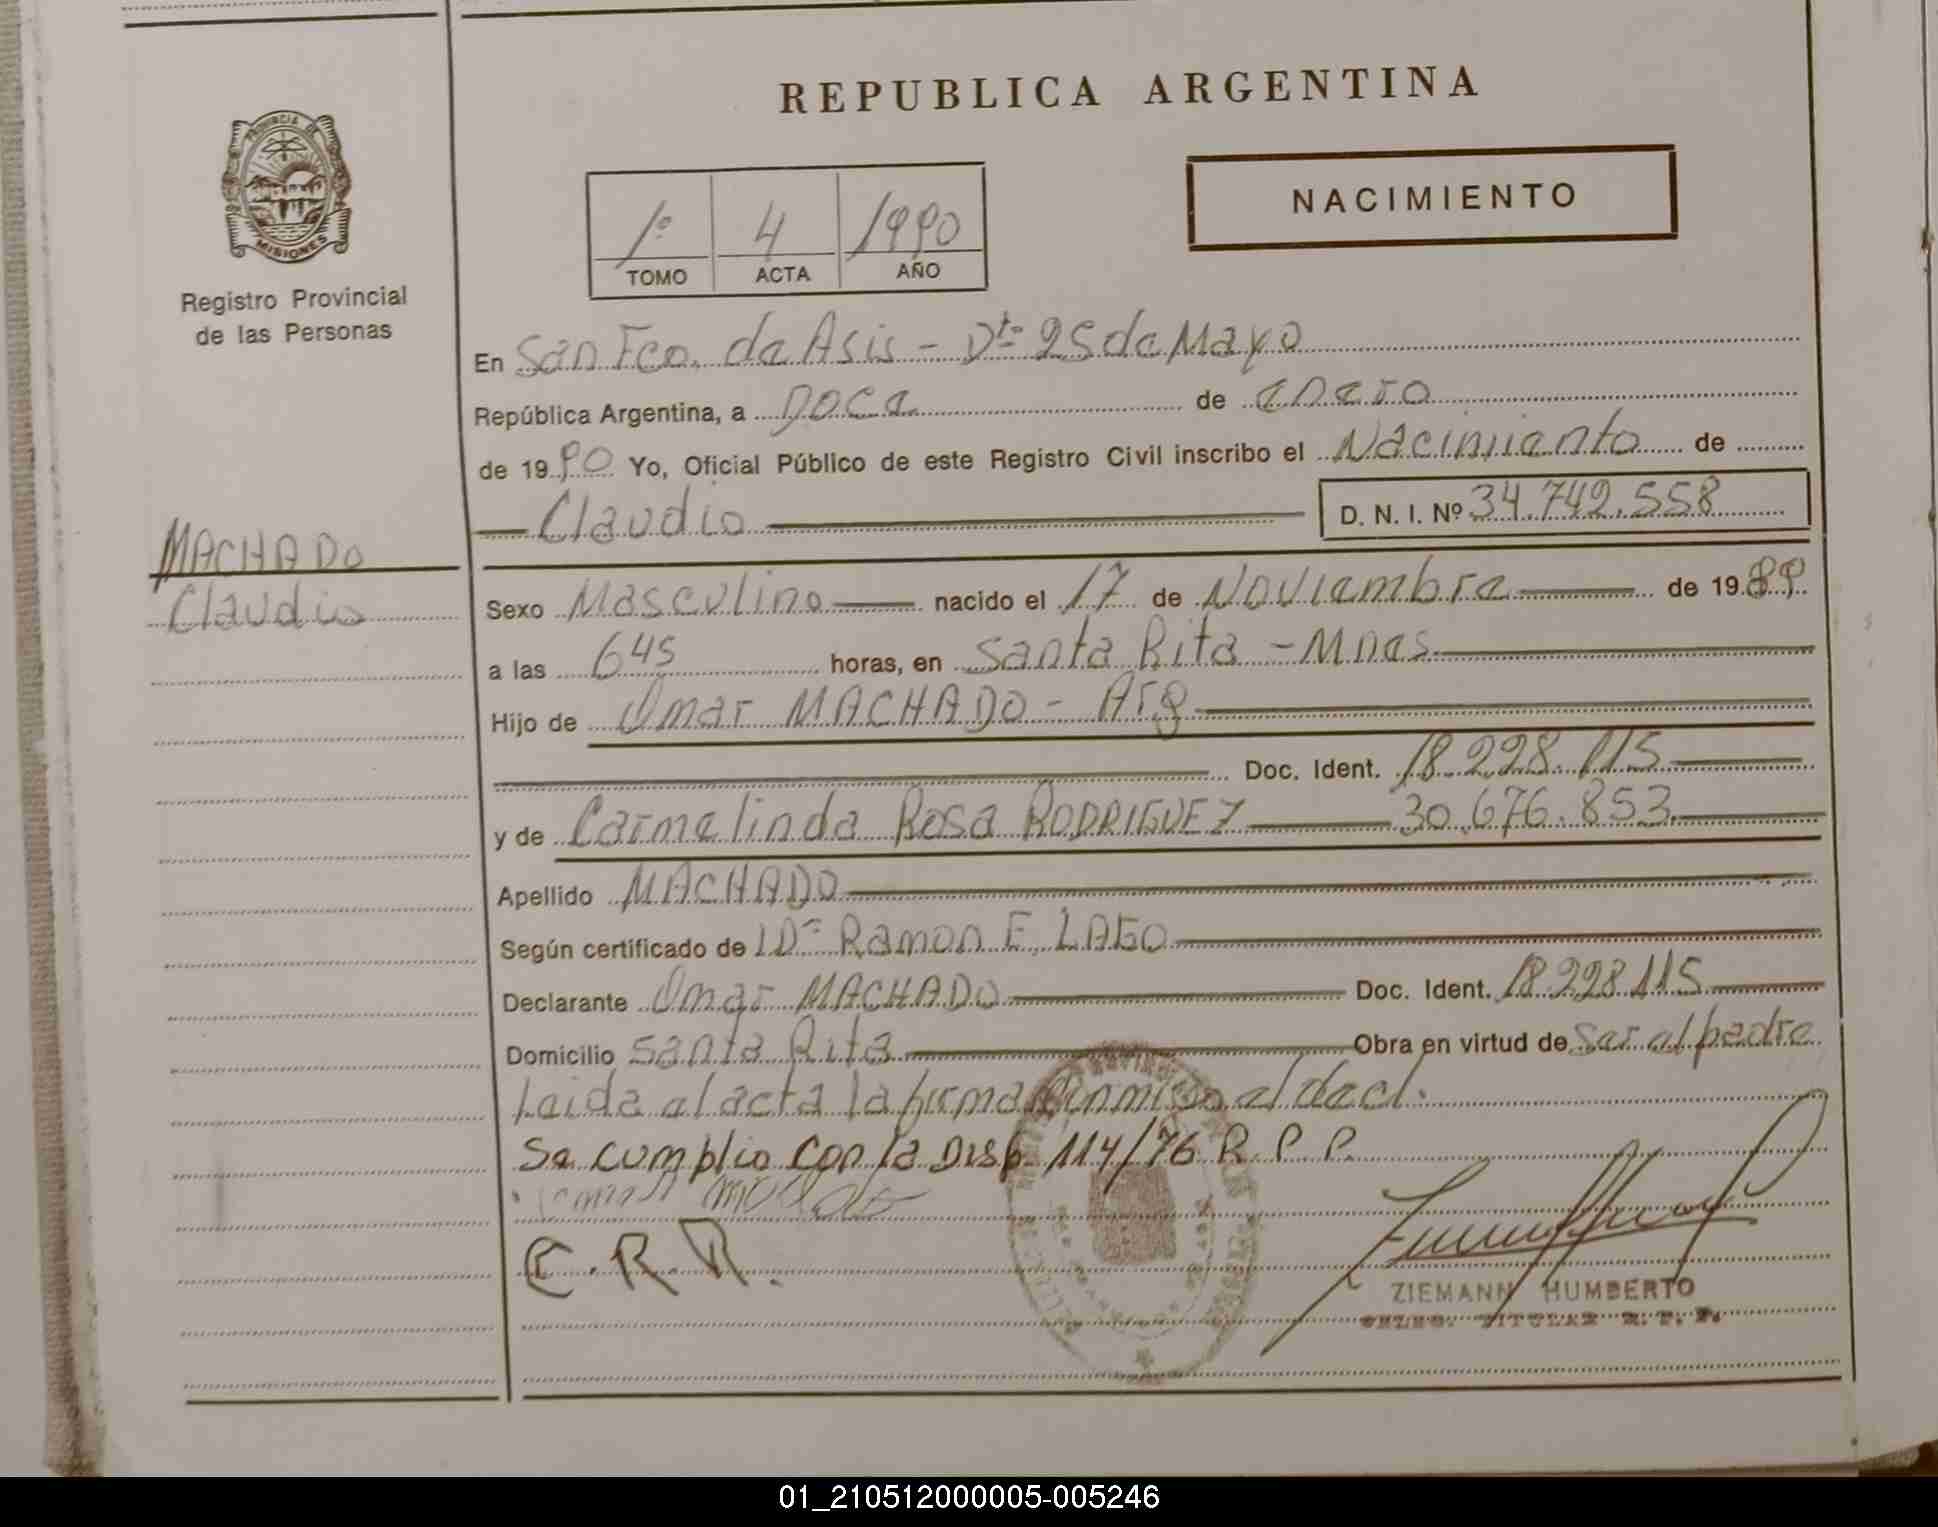 REPUBLICA ARGENTINA
NACIMIENTO
1º 4 1990
TOMO ACTA AÑO
PROVINCIA DE
MISIONES
Registro Provincial
de las Personas
MACHADO
Claudio
En San Fco. de Asis - Dtº 25 de Mayo
República Argentina, a Doce de enero
de 1990 Yo, Oficial Público de este Registro Civil inscribo el Nacimiento de
Claudio D. N. I. Nº 34.742.558
Sexo Masculino nacido el 17 de Noviembre de 1989
a las 645 horas, en Santa Rita - Mnes
Hijo de Omar MACHADO - Arg
Doc. Ident. 18.228.115
y de Carmelinda Rosa RODRIGUEZ 30.676.853
Apellido MACHADO
Según certificado de Ramon E. LAGO
Declarante Omar MACHADO Doc. Ident. 18.228.115
Domicilio Santa Rita Obra en virtud de ser el padre
Leida el acta la firma conmigo el decl.
Se cumplio con la Disp. 114/76 R. P. P.
C.R.R.
ZIEMANN HUMBERTO
TITULAR R. P. P.
01_210512000005-005246